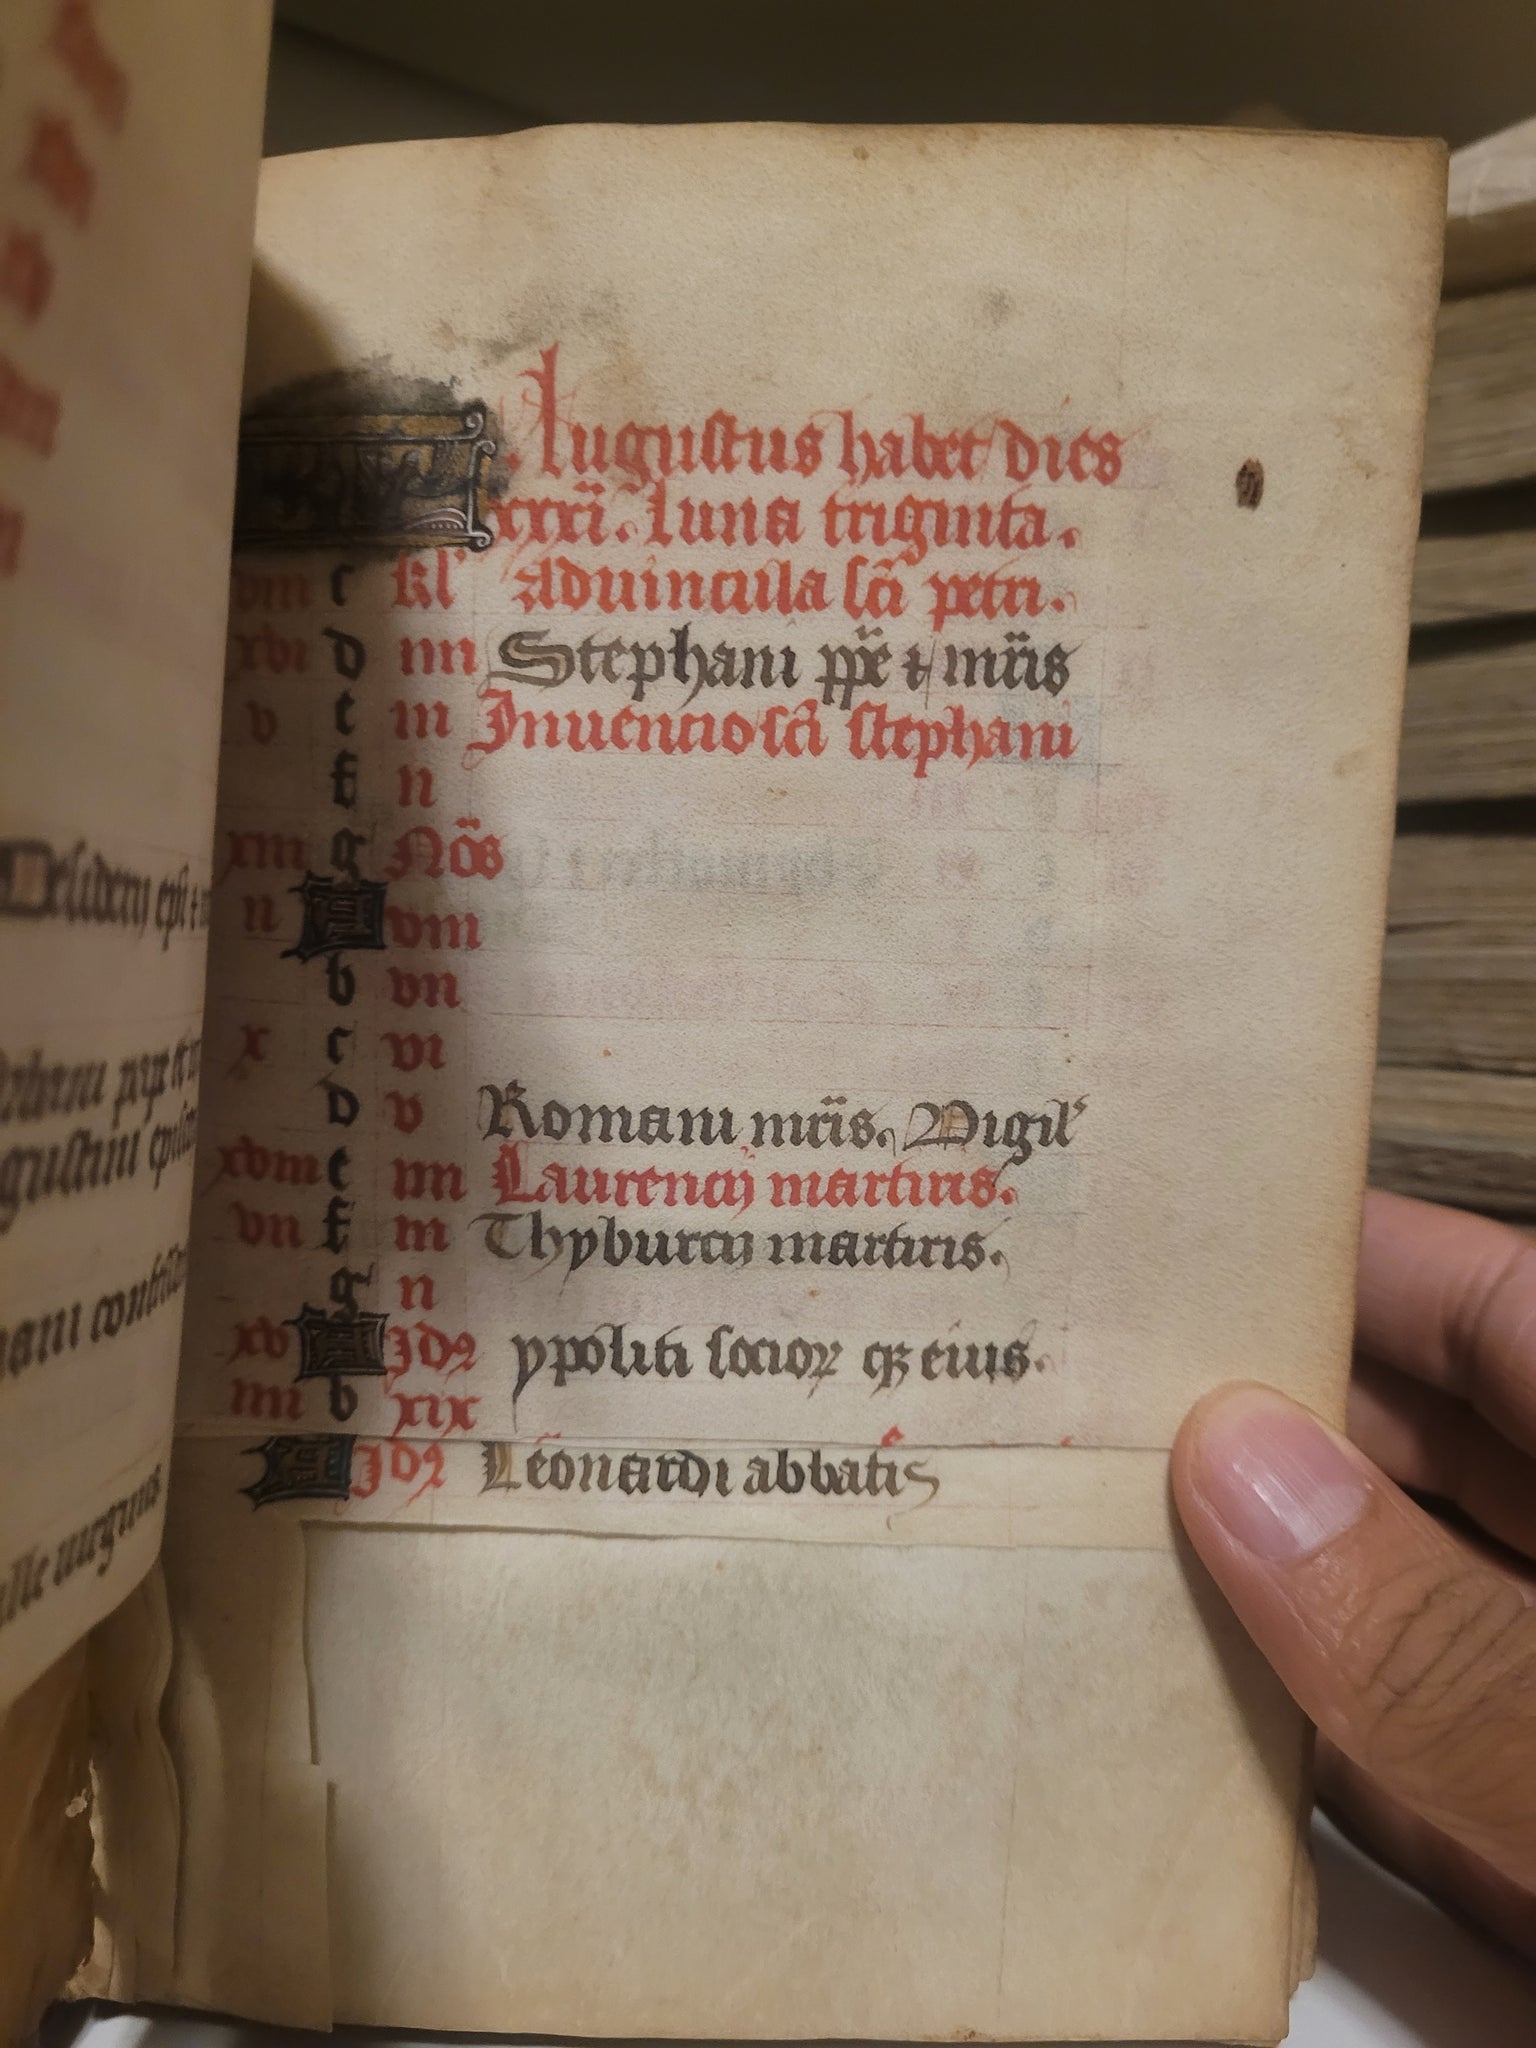 Augustus habet dies
xxxi. luna triginta.
viii c kl' Aduincula sci petri.
xvi d iiii Stephani ppe et mris
v e iii Inuencio sci stephani
f ii
xiii g Nos
ii A viii
b vii
x c vi
d v Romani mris. Vigil'
xviii e iiii Laurencij martiris.
vii f iii Thyburcij martiris.
g ii
xv A Idꝰ ypoliti socioꝝ qꝫ eius.
iiii b xix
A Idꝰ Leonardi abbatis
Desiderij epi et
gustini
uirginis